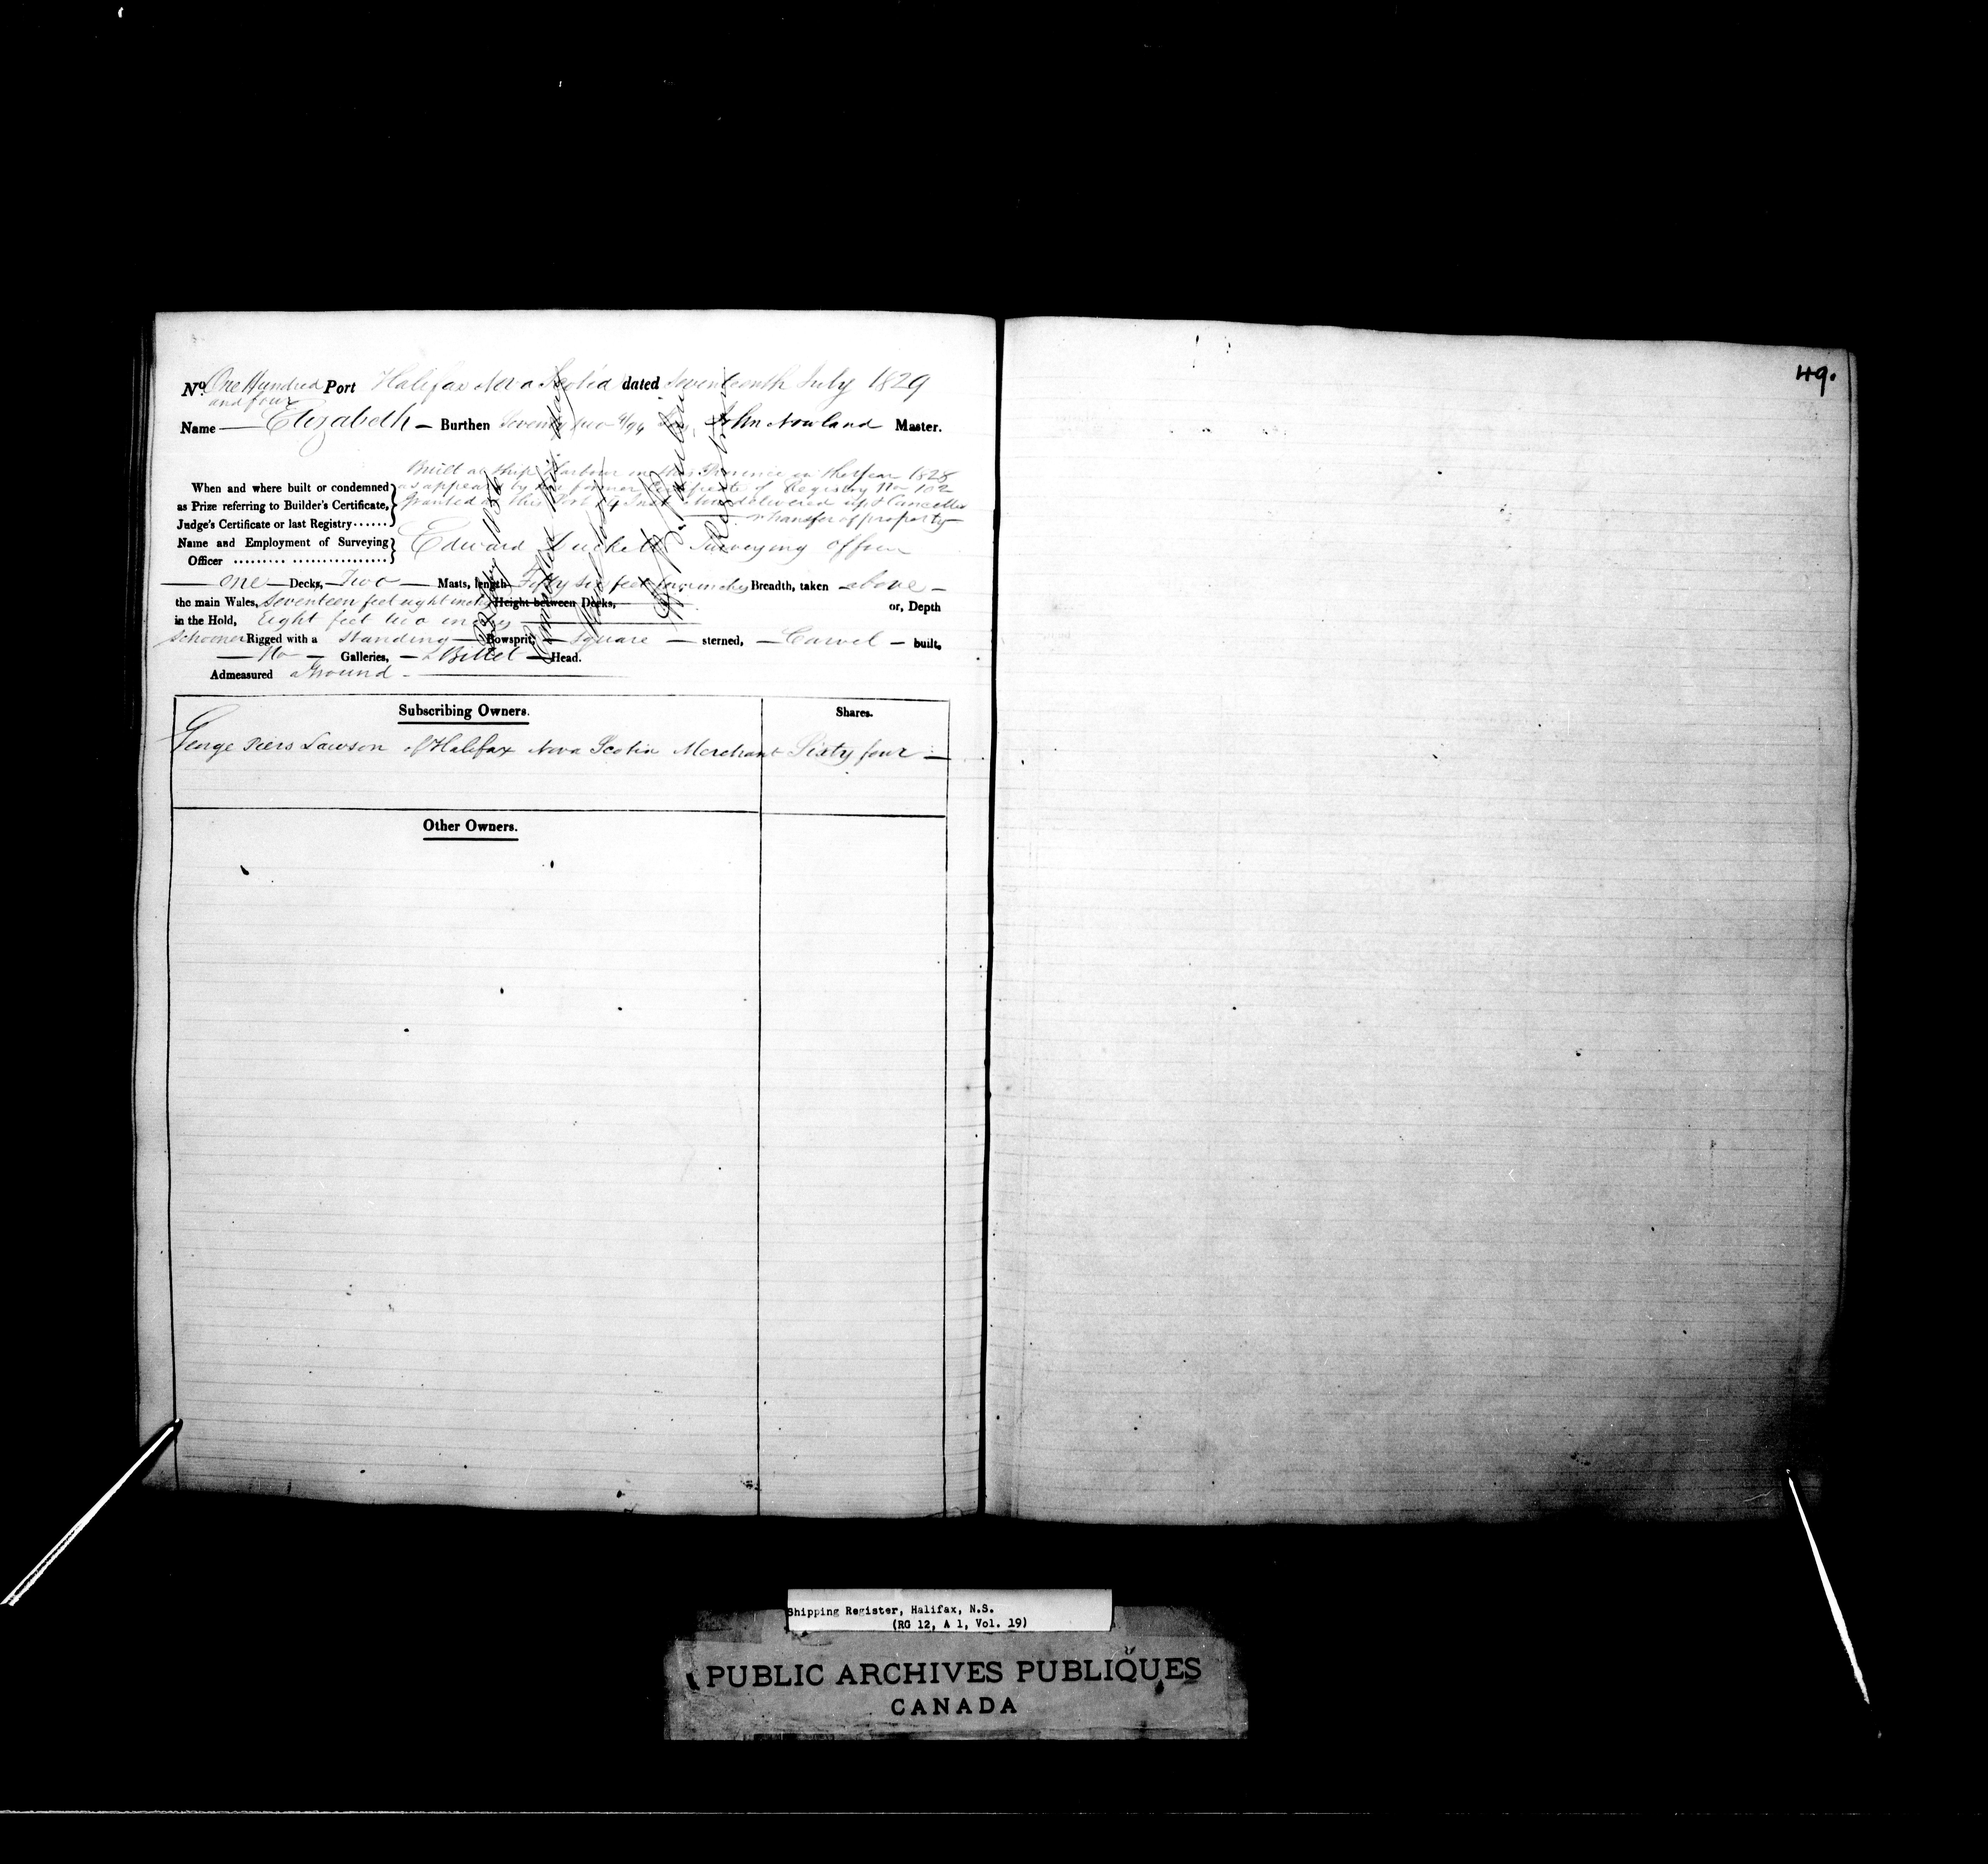 49.
No. One Hundred and four Port Halifax Nova Scotia dated Seventeenth July 1829
Name Elizabeth Burthen Seventy two /94 Tons, John Nowland Master.
When and where built or condemned as Prize referring to Builder's Certificate, Judge's Certificate or last Registry......
Built at Ship Harbour in this Province in the Year 1828
as appears by former Certificate of Registry No 102
Granted at this Port Inst now delivered up & Cancelled
Transfer of property
Name and Employment of Surveying Officer ......... ................
Edward Surveying Officer
One Decks, Two Masts, length Fifty six feet inches Breadth, taken above
the main Wales, Seventeen feet eight inches Height between Decks, or, Depth
in the Hold, Eight feet two inches
Schooner Rigged with a Standing Bowsprit, Square sterned, Carvel built,
No Galleries, Billet Head.
Admeasured aground
Subscribing Owners. Shares.
George Piers Lawson of Halifax Nova Scotia Merchant Sixty four
Other Owners.
1836
Shipping Register, Halifax, N.S.
(RG 12, A 1, Vol. 19)
PUBLIC ARCHIVES PUBLIQUES
CANADA